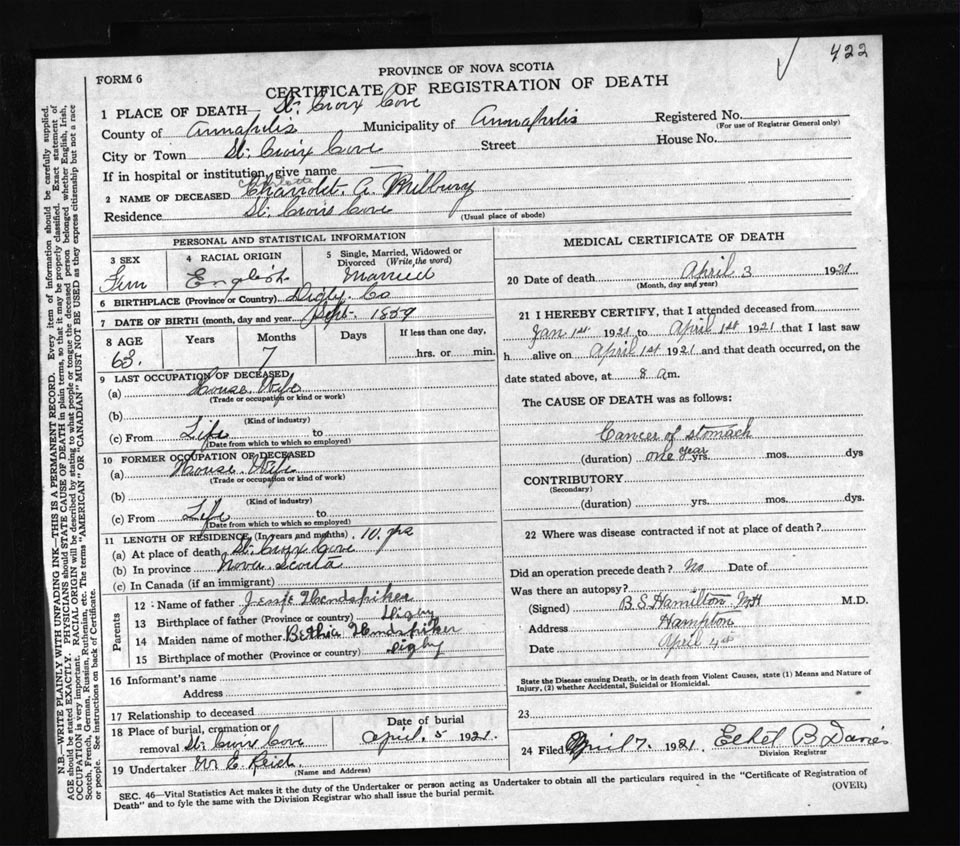 422
FORM 6
PROVINCE OF NOVA SCOTIA
CERTIFICATE OF REGISTRATION OF DEATH
1 PLACE OF DEATH— St. Croix Cove
County of Annapolis Municipality of Annapolis Registered No.
(For use of Registrar General only)
City or Town St. Croix Cove Street House No.
If in hospital or institution, give name
2 NAME OF DECEASED A. Milbury
Residence St. Croix Cove (Usual place of abode)
PERSONAL AND STATISTICAL INFORMATION
3 SEX Fem
4 RACIAL ORIGIN English
5 Single, Married, Widowed or Divorced (Write the word) Married
6 BIRTHPLACE (Province or Country) Digby Co
7 DATE OF BIRTH (month, day and year) Sept- 1859
8 AGE Years 63. Months 7 Days If less than one day, hrs. or min.
9 LAST OCCUPATION OF DECEASED
(a) House Wife
(Trade or occupation or kind or work)
(b)
(Kind of industry)
(c) From Life to
(Date from which to which so employed)
10 FORMER OCCUPATION OF DECEASED
(a) House Wife
(Trade or occupation or kind of work)
(b)
(Kind of industry)
(c) From Life to
(Date from which to which so employed)
11 LENGTH OF RESIDENCE (In years and months) 10. yrs
(a) At place of death St. Croix Cove
(b) In province Nova Scotia
(c) In Canada (if an immigrant)
Parents
12 Name of father Jesse Handspiker
13 Birthplace of father (Province or country) Digby
14 Maiden name of mother Bethia Handspiker
15 Birthplace of mother (Province or country) Digby
16 Informant's name
Address
17 Relationship to deceased
18 Place of burial, cremation or removal St. Croix Cove
Date of burial April, 5 1921.
19 Undertaker E. Reid.
(Name and Address)
MEDICAL CERTIFICATE OF DEATH
20 Date of death April 3 1921
(Month, day and year)
21 I HEREBY CERTIFY, that I attended deceased from
Jan 1st 1921 to April 1st 1921 that I last saw
h alive on April 1st 1921 and that death occurred, on the
date stated above, at 8 a m.
The CAUSE OF DEATH was as follows:
Cancer of stomach
(duration) one year yrs. mos. dys
CONTRIBUTORY
(Secondary)
(duration) yrs. mos. dys.
22 Where was disease contracted if not at place of death?
Did an operation precede death? No Date of
Was there an autopsy?
(Signed) B. S. Hamilton M.D.
Address Hampton
Date April 4th
State the Disease causing Death, or in death from Violent Causes, state (1) Means and Nature of
Injury, (2) whether Accidental, Suicidal or Homicidal.
23
24 Filed April 7. 1921. Ethel B Davies
Division Registrar
SEC. 46—Vital Statistics Act makes it the duty of the Undertaker or person acting as Undertaker to obtain all the particulars required in the "Certificate of Registration of
Death" and to fyle the same with the Division Registrar who shall issue the burial permit.
(OVER)
N.B.—WRITE PLAINLY WITH UNFADING INK—THIS IS A PERMANENT RECORD. Every item of information should be carefully supplied.
AGE should be stated EXACTLY. PHYSICIANS should STATE CAUSE OF DEATH in plain terms, so that it may be properly classified. Exact statement of
OCCUPATION is very important. RACIAL ORIGIN will be described by stating to what people or tongue the deceased person belonged whether English, Irish,
Scotch, French, German, Russian, Ruthenian, etc. The terms "AMERICAN" OR "CANADIAN" MUST NOT BE USED as they express citizenship but not a race
or people. See instructions on back of Certificate.